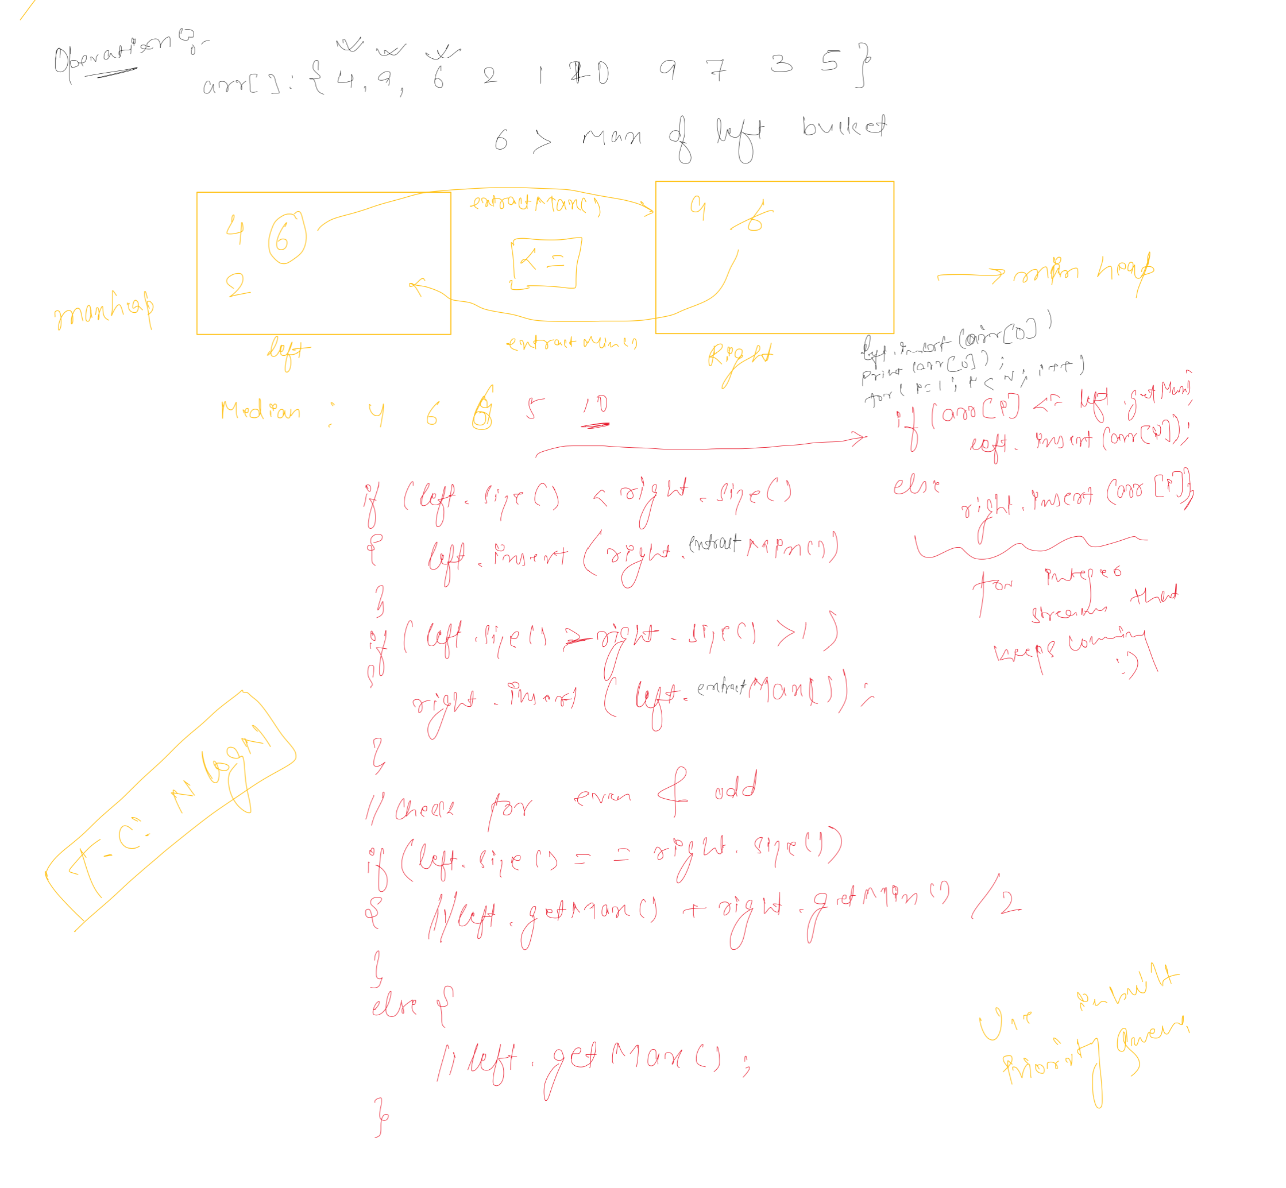 Operations:-
arr[]: { 4, 9, 6 2 1 10 9 7 3 5 }
6 > Max of left bucket
extractMax()
4 6
9 6
<=
2
maxheap
→ min heap
left
extractMin()
Right
left.insert(arr[0])
print(arr[0]);
for(i=1; i<N; i++)
Median : 4 6 6 5 10
if (arr[i] <= left.getMax)
left.insert(arr[i]);
else
right.insert(arr[i]);
for integer
stream that
keeps coming
:)
if (left.size() < right.size()
{ left.insert(right.extractMin())
}
if (left.size() - right.size() > 1)
{
right.insert(left.extractMax());
}
T-C: N log N
// check for even & odd
if (left.size() == right.size())
{ // left.getMax() + right.getMin() / 2
}
else {
// left.getMax();
}
Use inbuilt
Priority Queue.